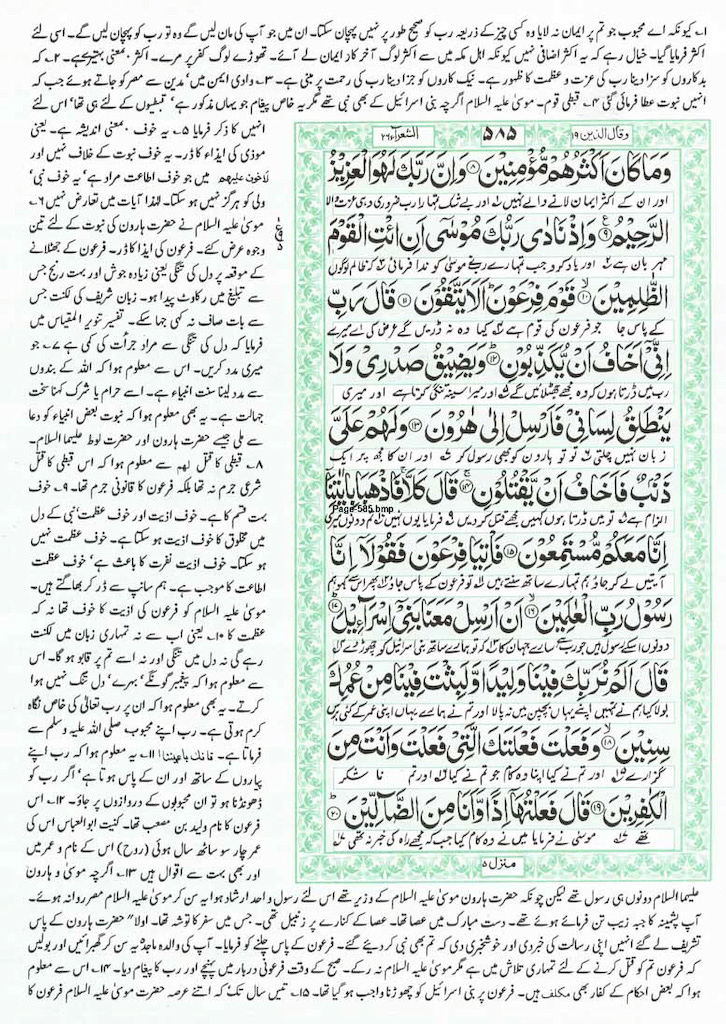 ۱؎ کیونکہ اے محبوب جو تم پر ایمان نہ لایا وہ کسی چیز کے ذریعہ رب کو صحیح طور پر نہیں پہچان سکتا۔ اس میں جو آپ کی مان لیں گے وہ تو رب کو پہچان لیں گے۔ اسی لئے
اکثر فرمایا گیا۔ خیال رہے کہ یہ اکثر اضافی نہیں کیونکہ اہل مکہ میں سے اکثر لوگ آخر کار ایمان لے آئے۔ تھوڑے لوگ کفر پر مرے۔ اکثر بمعنی بہتیرے ہے۔ ۲؎ کہ
بدکاروں کو سزا دینا رب کی عزت و عظمت کا ظہور ہے۔ نیک کاروں کو جزا دینا رب کی رحمت پر مبنی ہے۔ ۳؎ وادی ایمن میں' مدین سے مصر کو جاتے ہوئے جب کہ
انہیں نبوت عطا فرمائی گئی ۴؎ قبطی قوم۔ موسیٰ علیہ السلام اگرچہ بنی اسرائیل کے بھی نبی تھے مگر یہ خاص پیغام جو یہاں مذکور ہے' قبطیوں کے لئے ہی تھا' اس لئے
وقال الذین ۱۹
۵۸۵
الشعراء ۲۶
وَمَا كَانَ اَكْثَرُهُمْ مُّؤْمِنِيْنَ ۸ وَاِنَّ رَبَّكَ لَهُوَ الْعَزِيْزُ
اور ان کے اکثر ایمان لانے والے نہیں اور بے شک تمہارا رب ضرور وہی عزت والا
الرَّحِيْمُ ۹ وَاِذْ نَادٰى رَبُّكَ مُوْسٰٓى اَنِ ائْتِ الْقَوْمَ
مہربان ہے اور یاد کرو جب تمہارے رب نے موسیٰ کو ندا فرمائی کہ ظالم لوگوں
الظّٰلِمِيْنَ ۱۰ قَوْمَ فِرْعَوْنَ اَلَا يَتَّقُوْنَ ۱۱ قَالَ رَبِّ
کے پاس جا جو فرعون کی قوم ہے کیا وہ نہ ڈریں گے عرض کی اے میرے
اِنِّيْٓ اَخَافُ اَنْ يُّكَذِّبُوْنِ ۱۲ وَيَضِيْقُ صَدْرِيْ وَلَا
رب میں ڈرتا ہوں کہ وہ مجھے جھٹلائیں گے اور میرا سینہ تنگی کرتا ہے اور میری
يَنْطَلِقُ لِسَانِيْ فَاَرْسِلْ اِلٰى هٰرُوْنَ ۱۳ وَلَهُمْ عَلَيَّ
زبان نہیں چلتی تو تو ہارون کو بھی رسول کر اور ان کا مجھ پر ایک
ذَنْۢبٌ فَاَخَافُ اَنْ يَّقْتُلُوْنِ ۱۴ قَالَ كَلَّا فَاذْهَبَا بِاٰيٰتِنَآ
Page-585.bmp
الزام ہے تو میں ڈرتا ہوں کہیں مجھے قتل کر دیں فرمایا یوں نہیں تم دونوں میری
اِنَّا مَعَكُمْ مُّسْتَمِعُوْنَ ۱۵ فَاْتِيَا فِرْعَوْنَ فَقُوْلَآ اِنَّا
آیتیں لے کر جاؤ ہم تمہارے ساتھ سنتے ہیں تو فرعون کے پاس جاؤ پھر اس سے کہو ہم
رَسُوْلُ رَبِّ الْعٰلَمِيْنَ ۱۶ اَنْ اَرْسِلْ مَعَنَا بَنِيْٓ اِسْرَآءِيْلَ ۱۷
دونوں اس کے رسول ہیں جو رب ہے سارے جہان کا کہ تو ہمارے ساتھ بنی اسرائیل کو چھوڑ دے
قَالَ اَلَمْ نُرَبِّكَ فِيْنَا وَلِيْدًا وَّلَبِثْتَ فِيْنَا مِنْ عُمُرِكَ
بولا کیا ہم نے تمہیں اپنے یہاں بچپن میں نہ پالا اور تم نے ہمارے یہاں اپنی عمر کے کئی برس
سِنِيْنَ ۱۸ وَفَعَلْتَ فَعْلَتَكَ الَّتِيْ فَعَلْتَ وَاَنْتَ مِنَ
گزارے اور تم نے کیا اپنا وہ کام جو تم نے کیا اور تم نا شکر
الْكٰفِرِيْنَ ۱۹ قَالَ فَعَلْتُهَآ اِذًا وَّاَنَا مِنَ الضَّآلِّيْنَ ۲۰
تھے موسیٰ نے فرمایا میں نے وہ کام کیا جب کہ مجھے راہ کی خبر نہ تھی
منزل ۵
انہیں کا ذکر فرمایا ۵؎ یہ خوف بمعنی اندیشہ ہے۔ یعنی
موذی کی ایذاء کا ڈر۔ یہ خوف نبوت کے خلاف نہیں اور
لاخوف علیھم میں جو خوف اطاعت مراد ہے' یہ خوف نبی'
ولی کو ہرگز نہیں ہو سکتا۔ لہٰذا آیات میں تعارض نہیں ۶؎
موسیٰ علیہ السلام نے حضرت ہارون کی نبوت کے لئے تین
وجوہ عرض کئے۔ فرعون کی ایذا کا ڈر۔ فرعون کے جھٹلانے
کے موقعہ پر دل کی تنگی یعنی زیادہ جوش اور بہت رنج جس
سے تبلیغ میں رکاوٹ پیدا ہو۔ زبان شریف کی لکنت جس
سے بات صاف نہ کہی جا سکے۔ تفسیر تنویر المقیاس میں
فرمایا کہ دل کی تنگی سے مراد جرأت کی کمی ہے ۷؎ جو
میری مدد کریں۔ اس سے معلوم ہوا کہ اللہ کے بندوں
سے مدد لینا سنت انبیاء ہے۔ اسے حرام یا شرک کہنا سخت
جہالت ہے۔ یہ بھی معلوم ہوا کہ نبوت بعض انبیاء کو دعا
سے ملی جیسے حضرت ہارون اور حضرت لوط علیہما السلام۔
۸؎ قبطی کا قتل لھم سے معلوم ہوا کہ اس قبطی کا قتل
شرعی جرم نہ تھا بلکہ فرعون کا قانونی جرم تھا۔ ۹؎ خوف
بہت قسم کا ہے۔ خوف اذیت اور خوف عظمت' نبی کے دل
میں مخلوق کا خوف اذیت ہو سکتا ہے۔ خوف عظمت نہیں
ہو سکتا۔ خوف اذیت نفرت کا باعث ہے' خوف عظمت
اطاعت کا موجب ہے۔ ہم سانپ سے ڈر کر بھاگتے ہیں۔
موسیٰ علیہ السلام کو فرعون کی اذیت کا خوف تھا نہ کہ
عظمت کا ۱۰؎ یعنی اب سے نہ تمہاری زبان میں لکنت
رہے گی نہ دل میں تنگی اور نہ اسے تم پر قابو ہو گا۔ اس
سے معلوم ہوا کہ پیغمبر گونگے' بہرے' دل تنگ نہیں ہوا
کرتے۔ یہ بھی معلوم ہوا کہ ان پر رب تعالیٰ کی خاص نگاہ
کرم ہوتی ہے۔ رب اپنے محبوب صلی اللہ علیہ وسلم سے
فرماتا ہے۔ فانک باعیننا ۱۱؎ یہ معلوم ہوا کہ رب اپنے
پیاروں کے ساتھ اور ان کے پاس ہوتا ہے' اگر رب کو
ڈھونڈنا ہو تو ان محبوبوں کے دروازوں پر جاؤ۔ ۱۲؎ اس
فرعون کا نام ولید بن مصعب تھا۔ کنیت ابو العباس اس کی
عمر چار سو ساٹھ سال ہوئی (روح) اس کے نام و عمر میں
اور بھی بہت سے اقوال ہیں ۱۳؎ اگرچہ موسیٰ و ہارون
علیہما السلام دونوں ہی رسول تھے لیکن چونکہ حضرت ہارون موسیٰ علیہ السلام کے وزیر تھے اس لئے رسول واحد ارشاد ہوا یہ سن کر موسیٰ علیہ السلام مصر روانہ ہوئے۔
آپ پشمینہ کا جبہ زیب تن فرمائے ہوئے تھے۔ دست مبارک میں عصا تھا۔ عصا کے کنارے پر زنبیل تھی۔ جس میں سفر کا توشہ تھا۔ اولاً حضرت ہارون کے پاس
تشریف لے گئے انہیں اپنی رسالت کی خبر دی اور خوشخبری دی کہ تم بھی نبی کر دیئے گئے۔ فرعون کے پاس چلنے کو فرمایا۔ آپ کی والدہ ماجدہ یہ سن کر گھبرائیں اور بولیں
کہ فرعون تم کو قتل کرنے کے لئے تمہاری تلاش میں ہے مگر موسیٰ علیہ السلام نہ رکے۔ صبح کے وقت فرعونی دربار میں پہنچے اور رب کا پیغام دیا۔ ۱۴؎ اس سے معلوم
ہوا کہ بعض احکام کے کفار بھی مکلف ہیں۔ فرعون پر بنی اسرائیل کو چھوڑنا واجب ہو گیا تھا۔ ۱۵؎ تیس سال تک' کہ اتنے عرصہ حضرت موسیٰ علیہ السلام فرعون کا